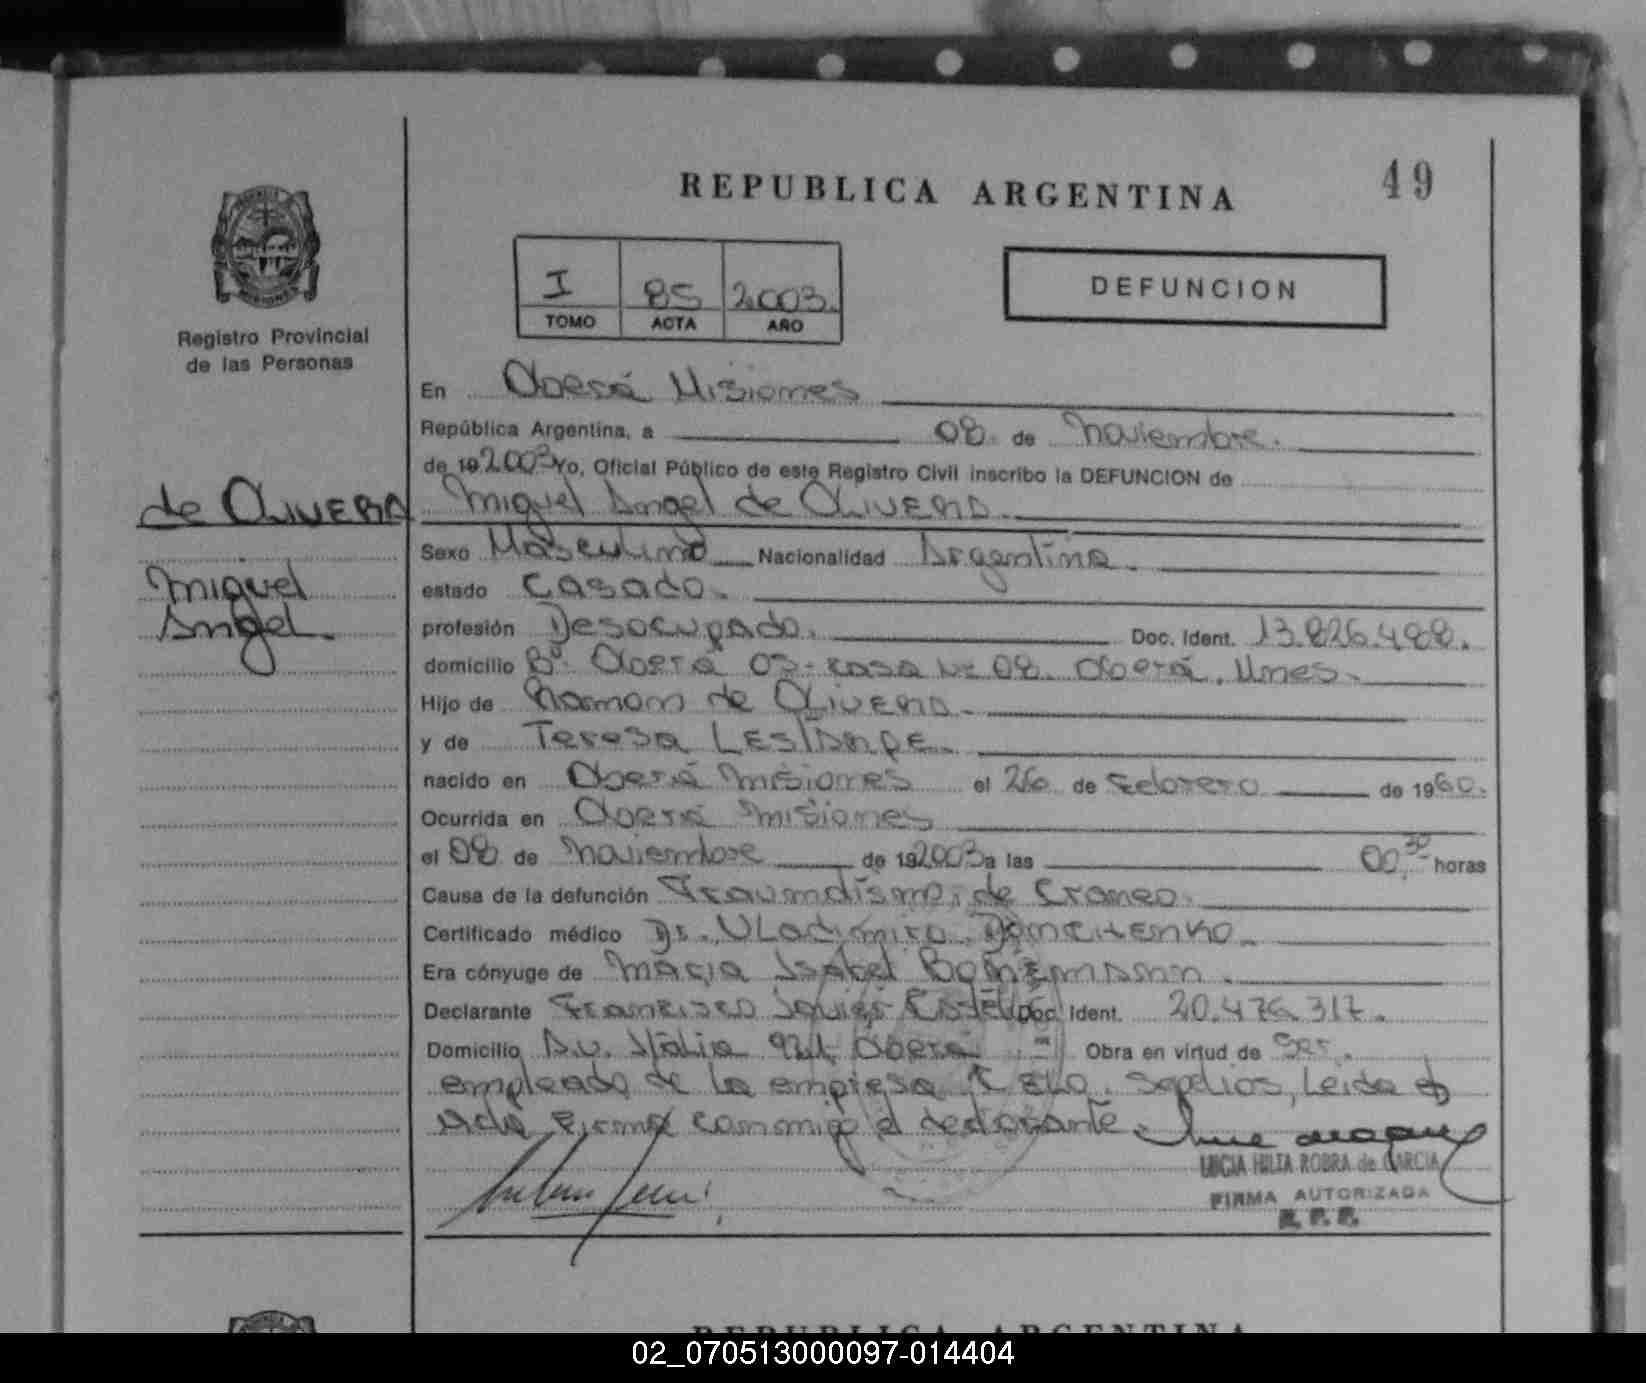 REPUBLICA ARGENTINA
49
Registro Provincial
de las Personas
I 85 2003.
TOMO ACTA AÑO
DEFUNCION
En Oberá Misiones
República Argentina, a 08 de Noviembre.
de 19 2003 Yo, Oficial Público de este Registro Civil inscribo la DEFUNCION de
de OLIVERA
Miguel Angel de OLIVERA.
Miguel
Angel.
Sexo Masculino Nacionalidad Argentina.
estado Casado.
profesión Desocupado. Doc. Ident. 13.826.488.
domicilio Bº Oberá 03- casa Nº 08. Oberá, Mnes.
Hijo de Norman de OLIVERA.
y de Teresa
nacido en Oberá Misiones el 26 de Febrero de 1960.
Ocurrida en Oberá Misiones
el 08 de Noviembre de 19 2003 a las 00,30 horas
Causa de la defunción Traumatismo, de Craneo.
Certificado médico Dr. Vladimiro
Era cónyuge de Maria Isabel
Declarante Francisco Javier Doc. Ident. 20.476.317.
Domicilio Av. Italia 921, Oberá Obra en virtud de Ser.
empleado de la empresa CELO. Sepelios, Leída el
Acta Firma conmigo el declarante.
LUCIA HILIA ROBRA de GARCIA
FIRMA AUTORIZADA
R. P. P.
REPUBLICA ARGENTINA
02_070513000097-014404